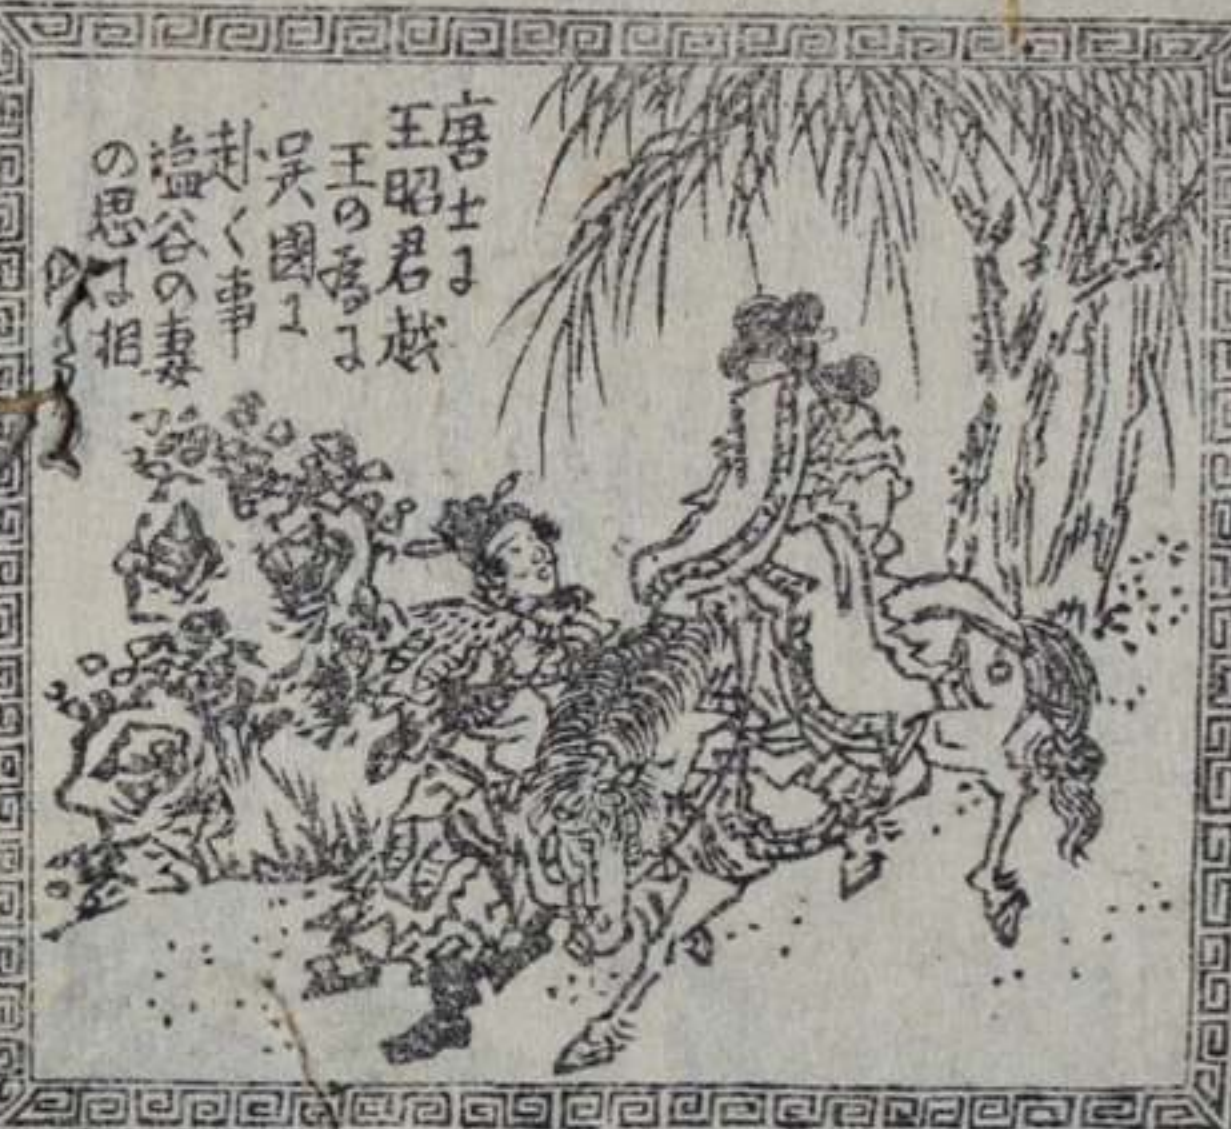 唐士に
王昭君越
王の為に
呉國に
赴く事
塩谷の妻
の思に相